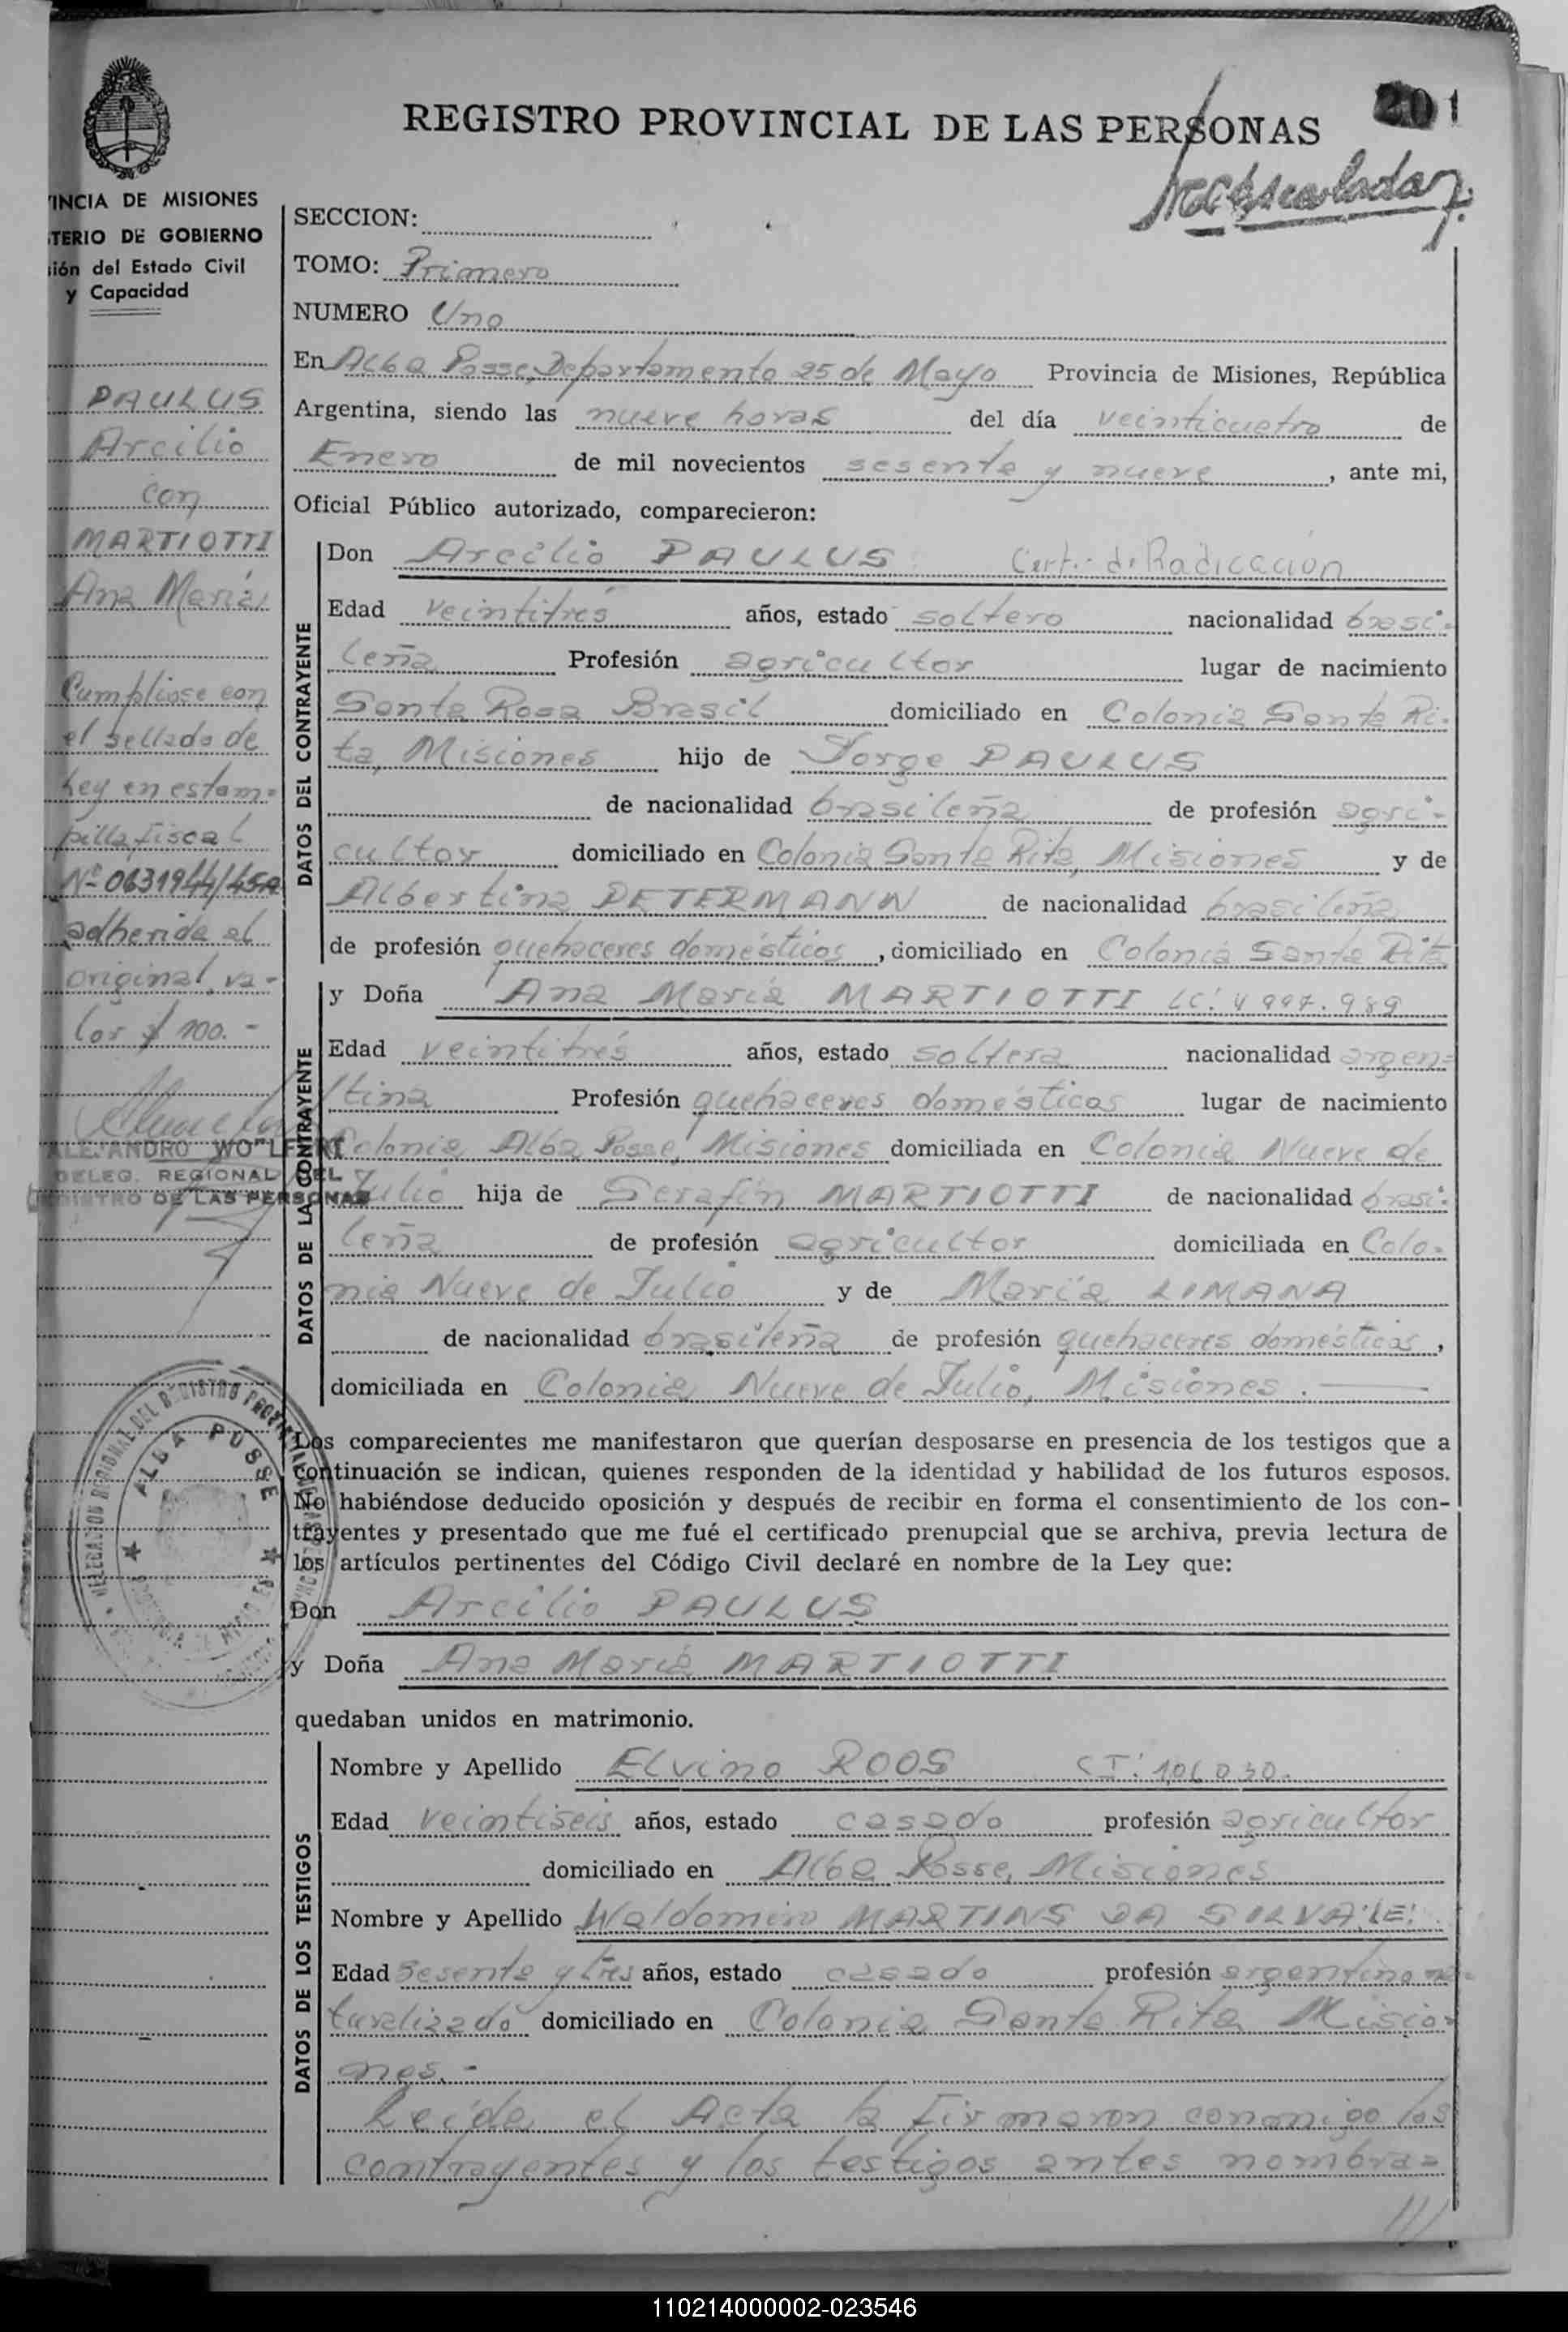 201
REGISTRO PROVINCIAL DE LAS PERSONAS
INCIA DE MISIONES
TERIO DE GOBIERNO
ión del Estado Civil
y Capacidad
SECCION:
TOMO: Primero
NUMERO Uno
En Alba Posse, Departamento 25 de Mayo Provincia de Misiones, República
Argentina, siendo las nueve horas del día veinticuatro de
Enero de mil novecientos sesenta y nueve, ante mi,
Oficial Público autorizado, comparecieron:
PAULUS
Arcilio
con
MARTIOTTI
Ana María
Cumpliose con
el sellado de
Ley en estam=
pilla fiscal
Nº 0631944/45A
adherida al
original, va-
lor $ 100.-
ALEJANDRO WOLFERT
DELEG. REGIONAL DEL
REGISTRO DE LAS PERSONAS
DELEGACION REGIONAL DEL REGISTRO PROVINCIAL DE LAS PERSONAS
ALBA POSSE
DATOS DEL CONTRAYENTE
Don Arcilio PAULUS Cert. de Radicación
Edad veintitrés años, estado soltero nacionalidad brasi-
leña Profesión agricultor lugar de nacimiento
Santa Rosa Brasil domiciliado en Colonia Santa Ri-
ta, Misiones hijo de Jorge PAULUS
de nacionalidad brasileña de profesión agri-
cultor domiciliado en Colonia Santa Rita, Misiones y de
Albertina DETERMANN de nacionalidad brasileña
de profesión quehaceres domésticos, domiciliado en Colonia Santa Rita
DATOS DE LA CONTRAYENTE
y Doña Ana María MARTIOTTI LC: 4.994.989
Edad veintitrés años, estado soltera nacionalidad argen=
tina Profesión quehaceres domésticos lugar de nacimiento
Colonia Alba Posse, Misiones domiciliada en Colonia Nueve de
Julio hija de Serafín MARTIOTTI de nacionalidad brasi-
leña de profesión agricultor domiciliada en Colo-
nia Nueve de Julio y de María LIMANA
de nacionalidad brasileña de profesión quehaceres domésticos,
domiciliada en Colonia Nueve de Julio, Misiones.
Los comparecientes me manifestaron que querían desposarse en presencia de los testigos que a
continuación se indican, quienes responden de la identidad y habilidad de los futuros esposos.
No habiéndose deducido oposición y después de recibir en forma el consentimiento de los con-
trayentes y presentado que me fué el certificado prenupcial que se archiva, previa lectura de
los artículos pertinentes del Código Civil declaré en nombre de la Ley que:
Don Arcilio PAULUS
y Doña Ana María MARTIOTTI
quedaban unidos en matrimonio.
DATOS DE LOS TESTIGOS
Nombre y Apellido Elvino ROOS CI: 106.030.
Edad veintiseis años, estado casado profesión agricultor
domiciliado en Alba Posse, Misiones
Nombre y Apellido Waldomiro MARTINS DA SILVA. LE:
Edad sesenta y tres años, estado casado profesión argentino na-
turalizado domiciliado en Colonia Santa Rita Misio-
nes.-
Leída el Acta la firmaron conmigo los
contrayentes y los testigos antes nombra=
///
110214000002-023546